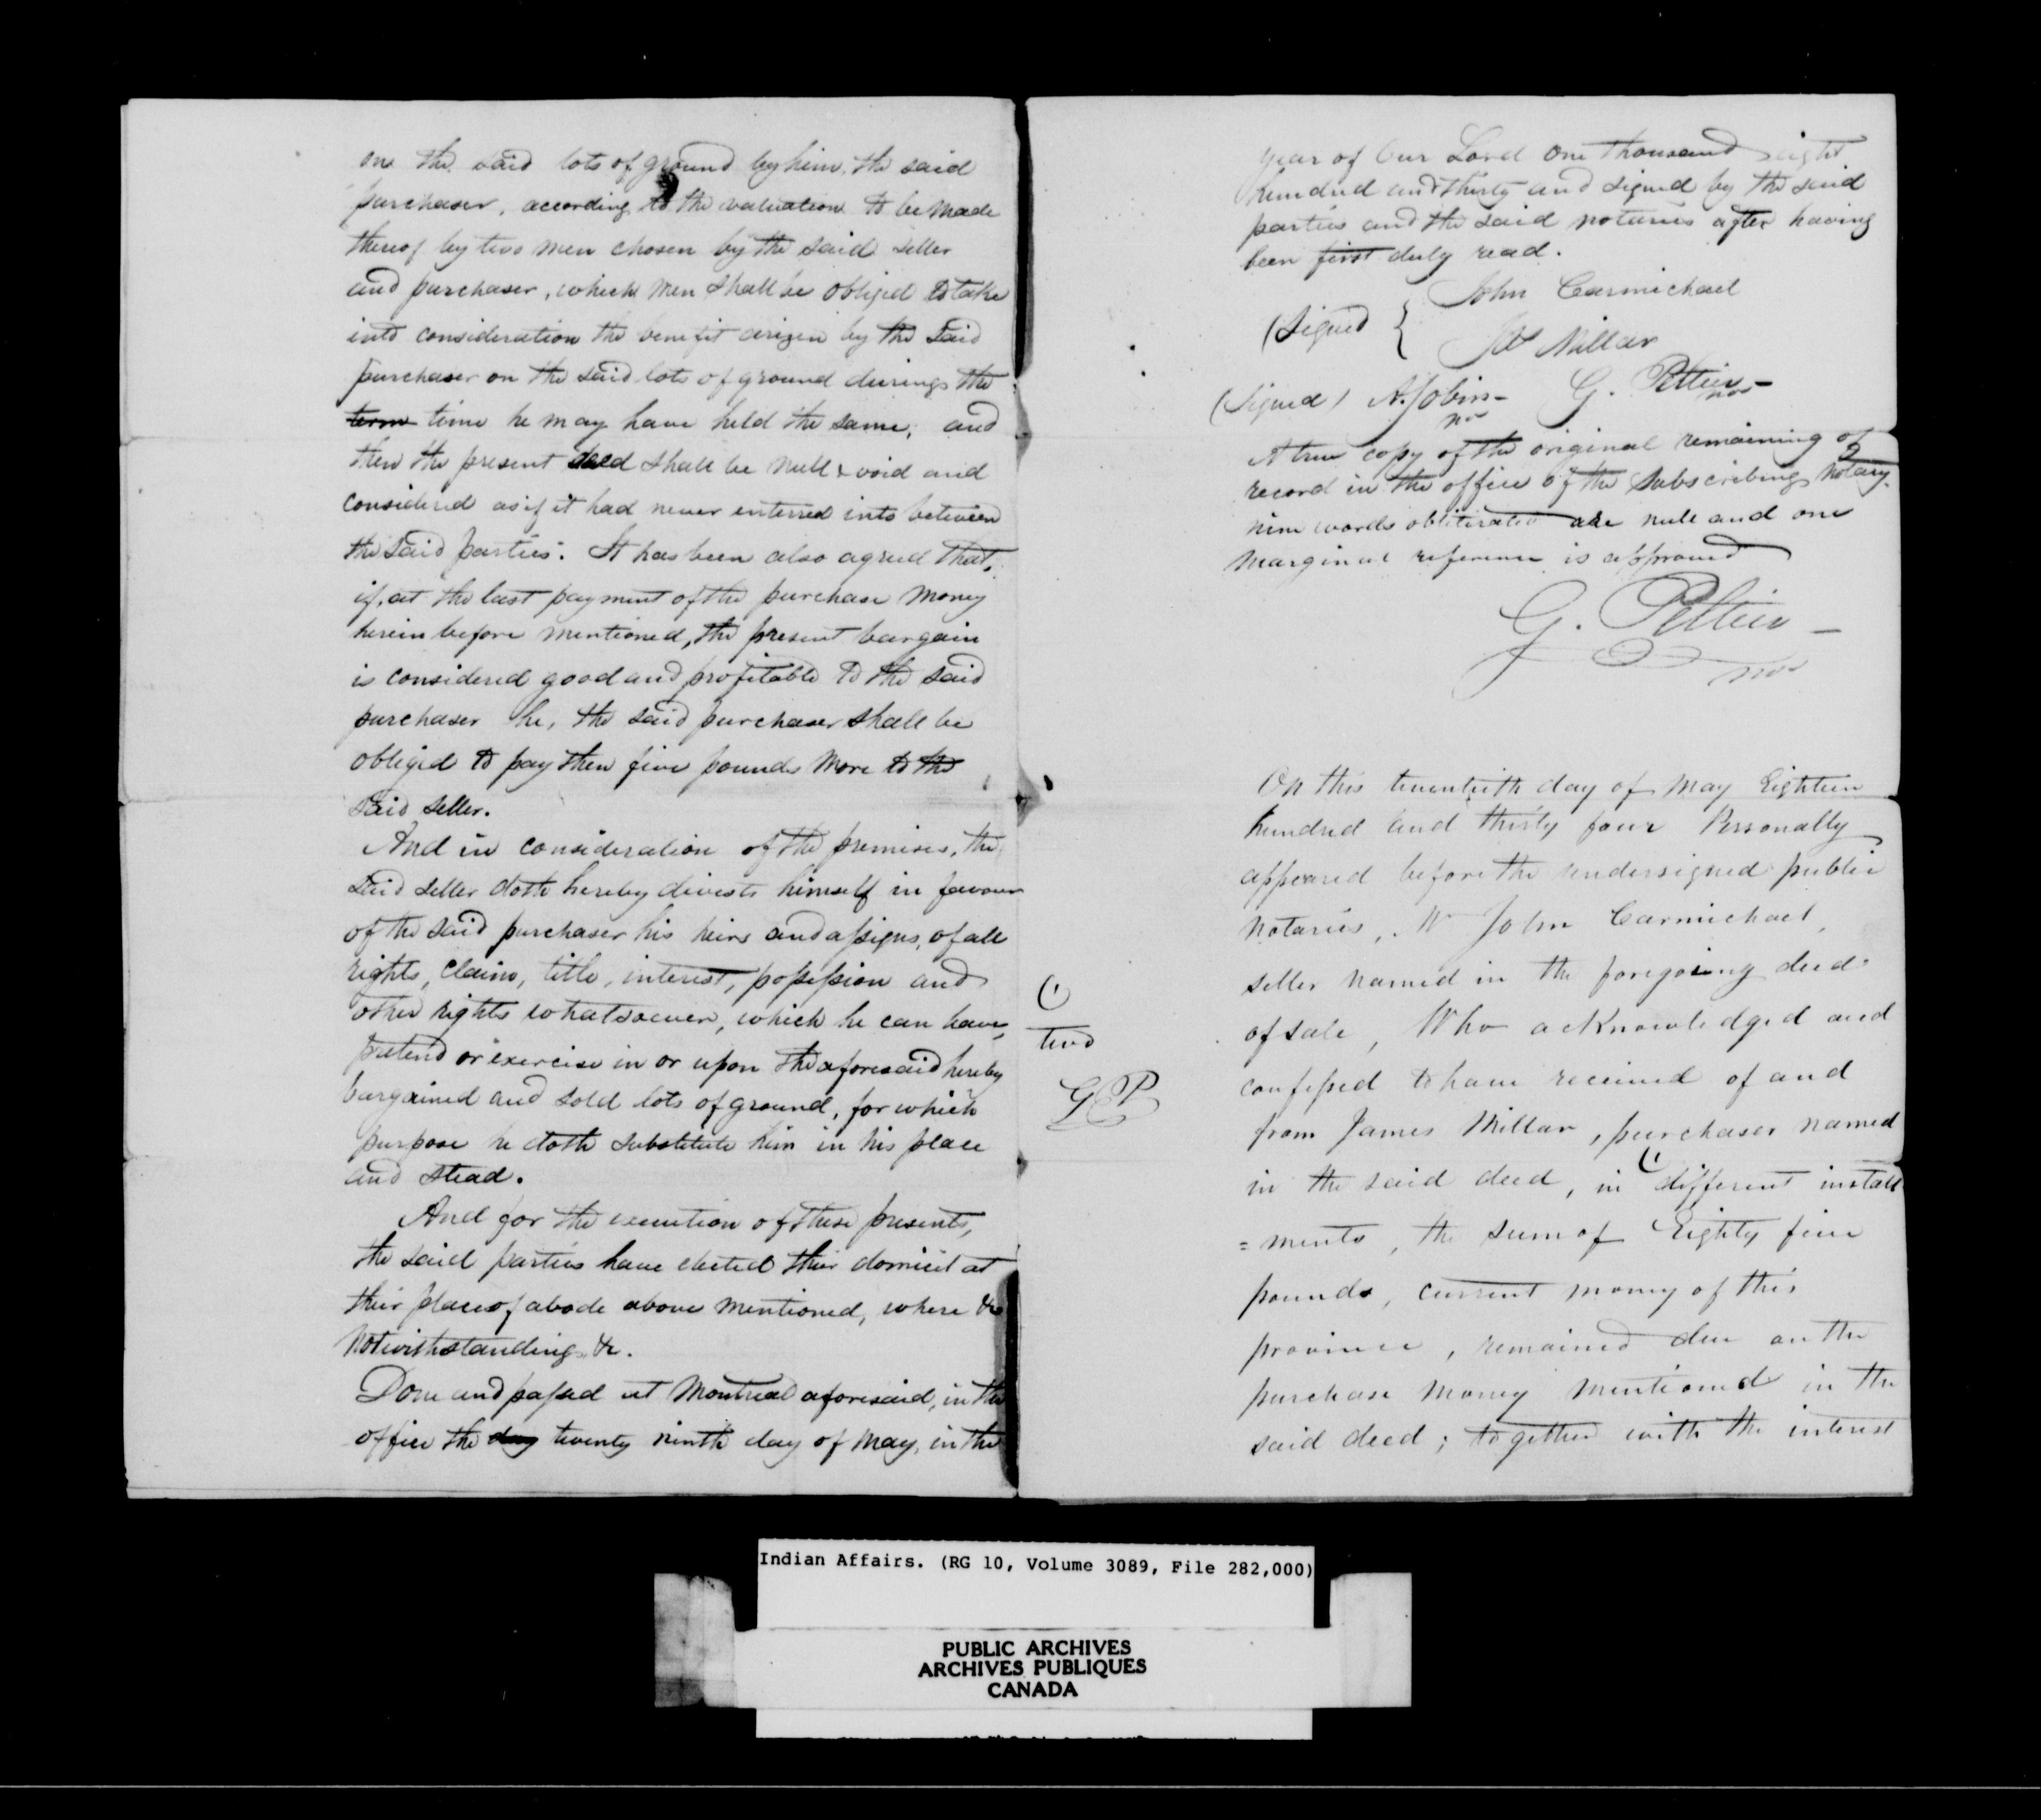 on the said lots of ground by him, the said
purchaser, according to the valuation to be made
thereof by two men chosen by the said seller
and purchaser, which men shall be obliged to take
into consideration the benefit arizen by the said
purchaser on the said lots of ground durings the
term time he may have held the same, and
then the present deed shall be null & void and
considered as if it had never enterred into between
the said parties. It has been also agreed that,
if, at the last payment of the purchase money
herein before mentioned, the present bargain
is considered good and profitable to the said
purchaser he, the said purchaser shall be
obliged to pay then five pounds more to the
said seller.
And in consideration of the premises, the
said seller doth hereby divests himself in favour
of the said purchaser his heirs and assigns, of all
rights, claim, title, interest, possession and
other rights whatsoever, which he can have,
pretend or exercise in or upon the aforesaid hereby
bargained and sold lots of ground, for which
purpose he doth substitute him in his place
and stead.
And for the execution of these presents,
the said parties have elected their domicil at
their place of abode above mentioned, where &c
Notwithstanding &c.
Done and passed at Montreal aforesaid, in the
office the day twenty ninth day of May, in the
year of Our Lord One thousand eight
hundred and thirty and signed by the said
parties and the said notaries after having
been first duly read.
John Carmichael
(Signed {
Js Millar
(Signed) A. Jobin - G. Peltier -
no nos
A true copy of the original remaining of
record in the office of the subscribing Notary.
nine words obliterated are null and one
marginal reference is approved
G. Peltier -
nos
On this twentieth day of May Eighteen
hundred and thirty four Personally
appeared before the undersigned public
notaries, Mr John Carmichael,
seller named in the foregoing deed
of sale, Who acknowledged and
confessed to have received of and
from James Millar, purchaser named
in the said deed, in (1 different install
=ments, the sum of Eighty five
pounds, current money of this
province, remained due on the
purchase money mentioned in the
said deed; together with the interest
(1
two
GP
Indian Affairs. (RG 10, Volume 3089, File 282,000)
PUBLIC ARCHIVES
ARCHIVES PUBLIQUES
CANADA